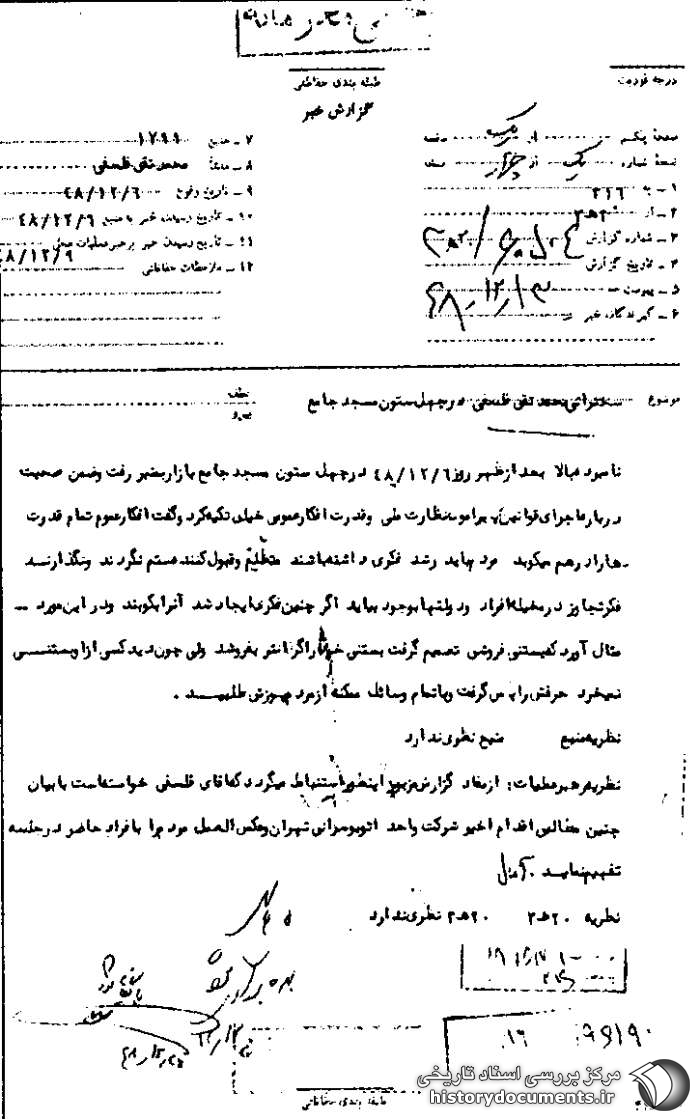 طبقه بندی حفاظتی
درجه فوریت
گزارش خبر
۷ ـ منبع ۱۲۹۹
۸ ـ منشاء محمدتقی فلسفی
۹ ـ تاریخ وقوع ۴۸/۱۲/۶
۱۰ ـ تاریخ رسیدن خبر به منبع ۴۸/۱۲/۶
۱۱ ـ تاریخ رسیدن خبر برهبر عملیات محل ۴۸/۱۲/۹
۱۲ ـ ملاحظات حفاظتی
صفحه یکم از یک صفحه
نسخه شماره یک از چهار نسخه
۱ ـ به ۳۱۶
۲ ـ از ۲۰ه۳
۳ ـ شماره گزارش
۴ ـ تاریخ گزارش ۴۸/۱۲/۱۳
۵ ـ پیوست
۶ ـ گیرندگان خبر
موضوع سخنرانی محمدتقی فلسفی در چهل ستون مسجد جامع
عطف
پیرو
نامبرده بالا بعد از ظهر روز ۴۸/۱۲/۶ در چهل ستون مسجد جامع بازار بمنبر رفت و ضمن صحبت
درباره اجرای قوانین پیرامون نظارت ملی و قدرت افکار عمومی خیلی تکیه کرد و گفت افکار عموم تمام قدرت
ها را درهم میکوبد مردم باید رشد فکری داشته باشند و قبول کنند ستم نگردند و نگذارنـد
فکر تجاوز در مخیله افراد و دولتها بوجود بیاید اگر چنین فکری ایجاد شد آنرا بکوبند و در این مورد ـ
مثال آورد که بستنی فروشی تصمیم گرفت بستنی خود را گرانتر بفروشد ولی چون دید کسی از او بستنـــی
نمیخرد حرفش را پس گرفت و با تمام وسائل ممکنه از مردم پوزش طلبیـــد .
نظریه منبع منبع نظری ندارد
نظریه رهبر عملیات: از مفاد گزارش مزبور اینطور استنباط میگردد که آقای فلسفی خواسته است با بیان
چنین مطالبی اقدام اخیر شرکت واحد اتوبوسرانی تهران و عکس العمل مردم را بافراد حاضر در جلسه
تفهیم نمایـد .
نظریه ۲۰ه۳ ۲۰ه۳ نظری ندارد
طبقه بندی حفاظتی
مرکز بررسی اسناد تاریخی
historydocuments.ir